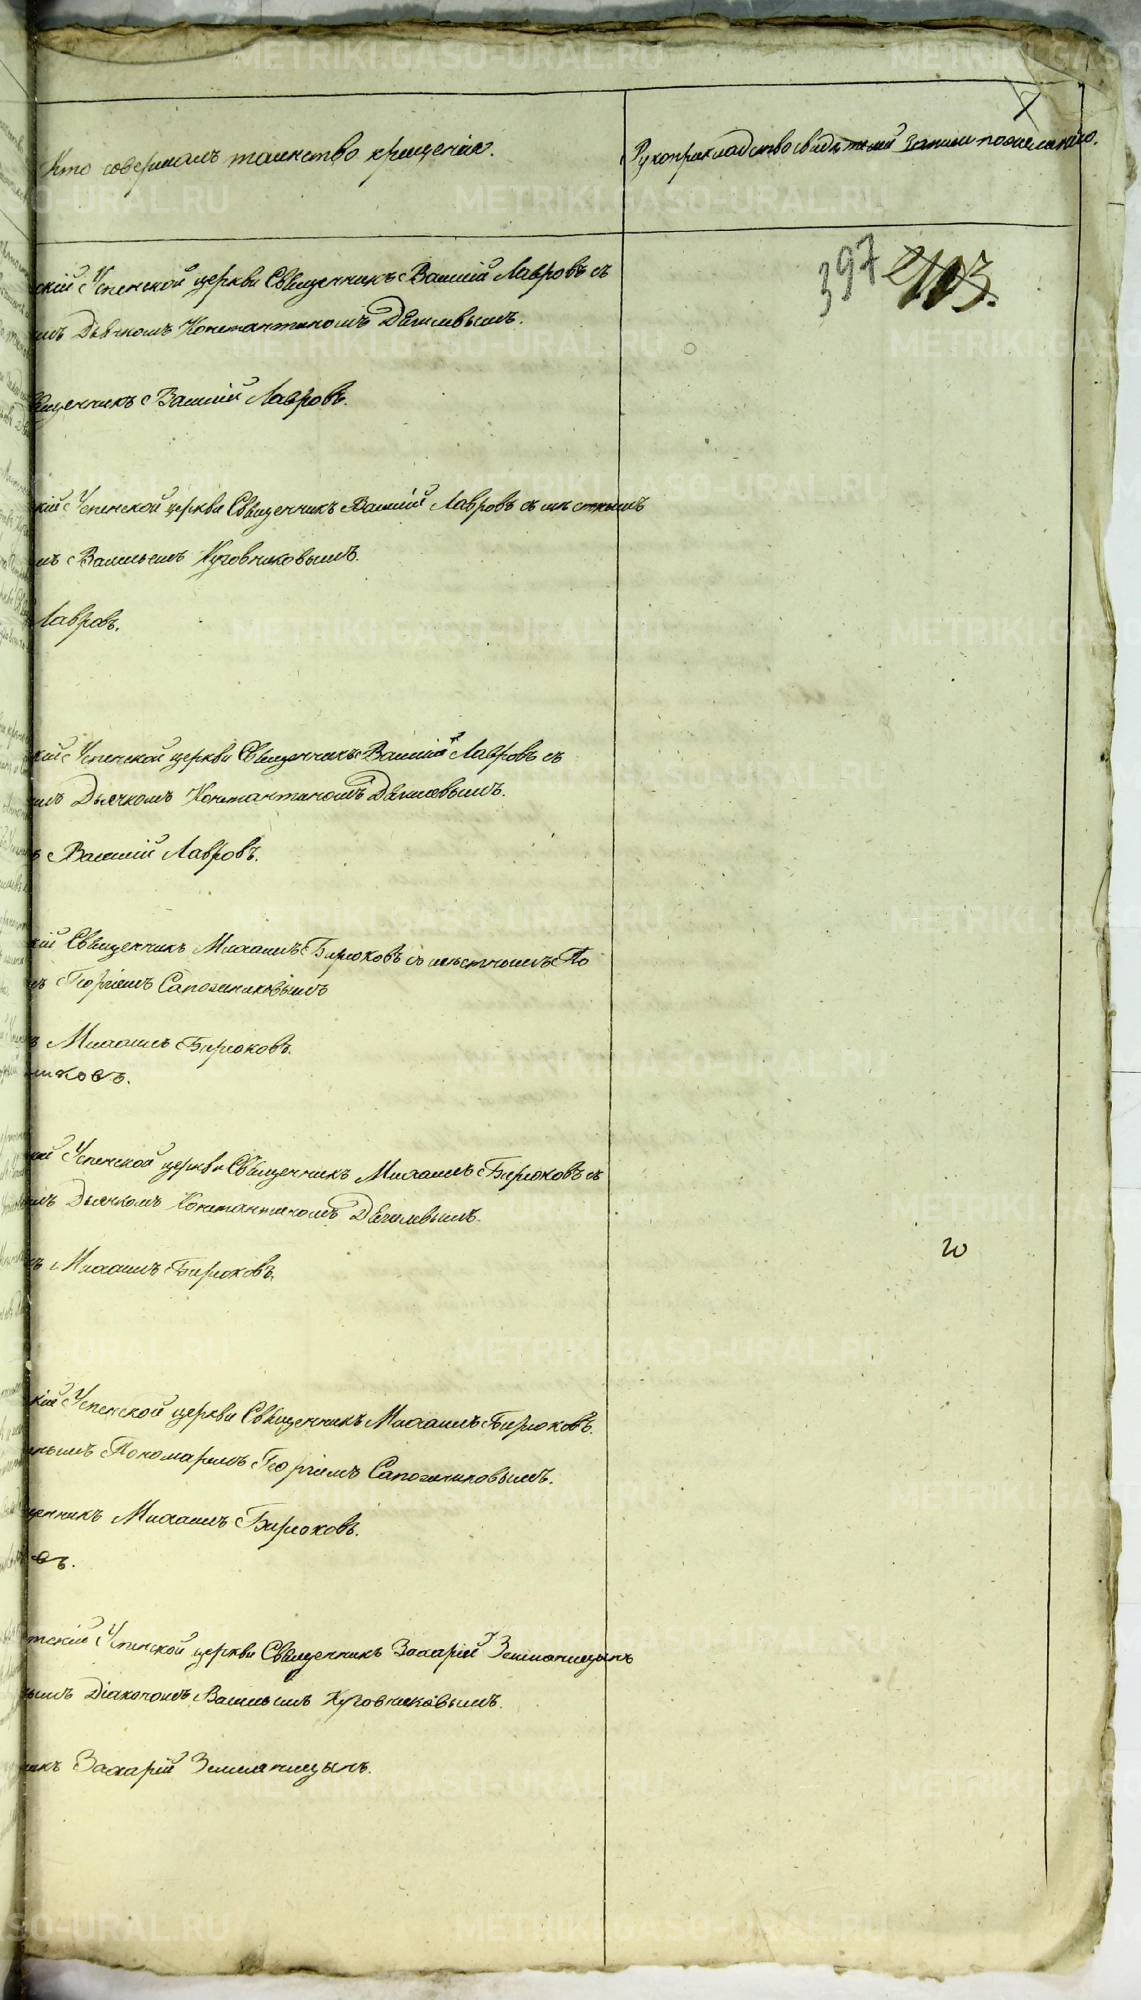 Кто совершалъ таинство крещенія.
Рукоприкладство свидѣтелей записи по желанію.
397
скій Успенской церкви Священникъ Василій Лавровъ съ
Дьячкомъ Константиномъ
Священникъ Василій Лавровъ.
кій Успенской церкви Священникъ Василій Лавровъ съ мѣстнымъ
мъ Васильемъ Куговниковымъ.
Лавровъ.
кій Успенской церкви Священникъ Василій Лавровъ съ
Дьячкомъ Константиномъ
Василій Лавровъ.
кій Священникъ Михаилъ Бирюковъ съ мѣстнымъ По
Георгіемъ Сапожниковымъ
ъ Михаилъ Бирюковъ.
никовъ.
кій Успенской церкви Священникъ Михаилъ Бирюковъ съ
Дьячкомъ Константиномъ
20
ъ Михаилъ Бирюковъ.
кій Успенской церкви Священникъ Михаилъ Бирюковъ.
нымъ Пономаремъ Георгіемъ Сапожниковымъ.
щенникъ Михаилъ Бирюковъ.
въ.
тскій Успенской церкви Священникъ Захарій Земляницынъ
нымъ Діакономъ Васильемъ Куговниковымъ.
никъ Захарій Земляницынъ.
METRIKI.GASO-URAL.RU